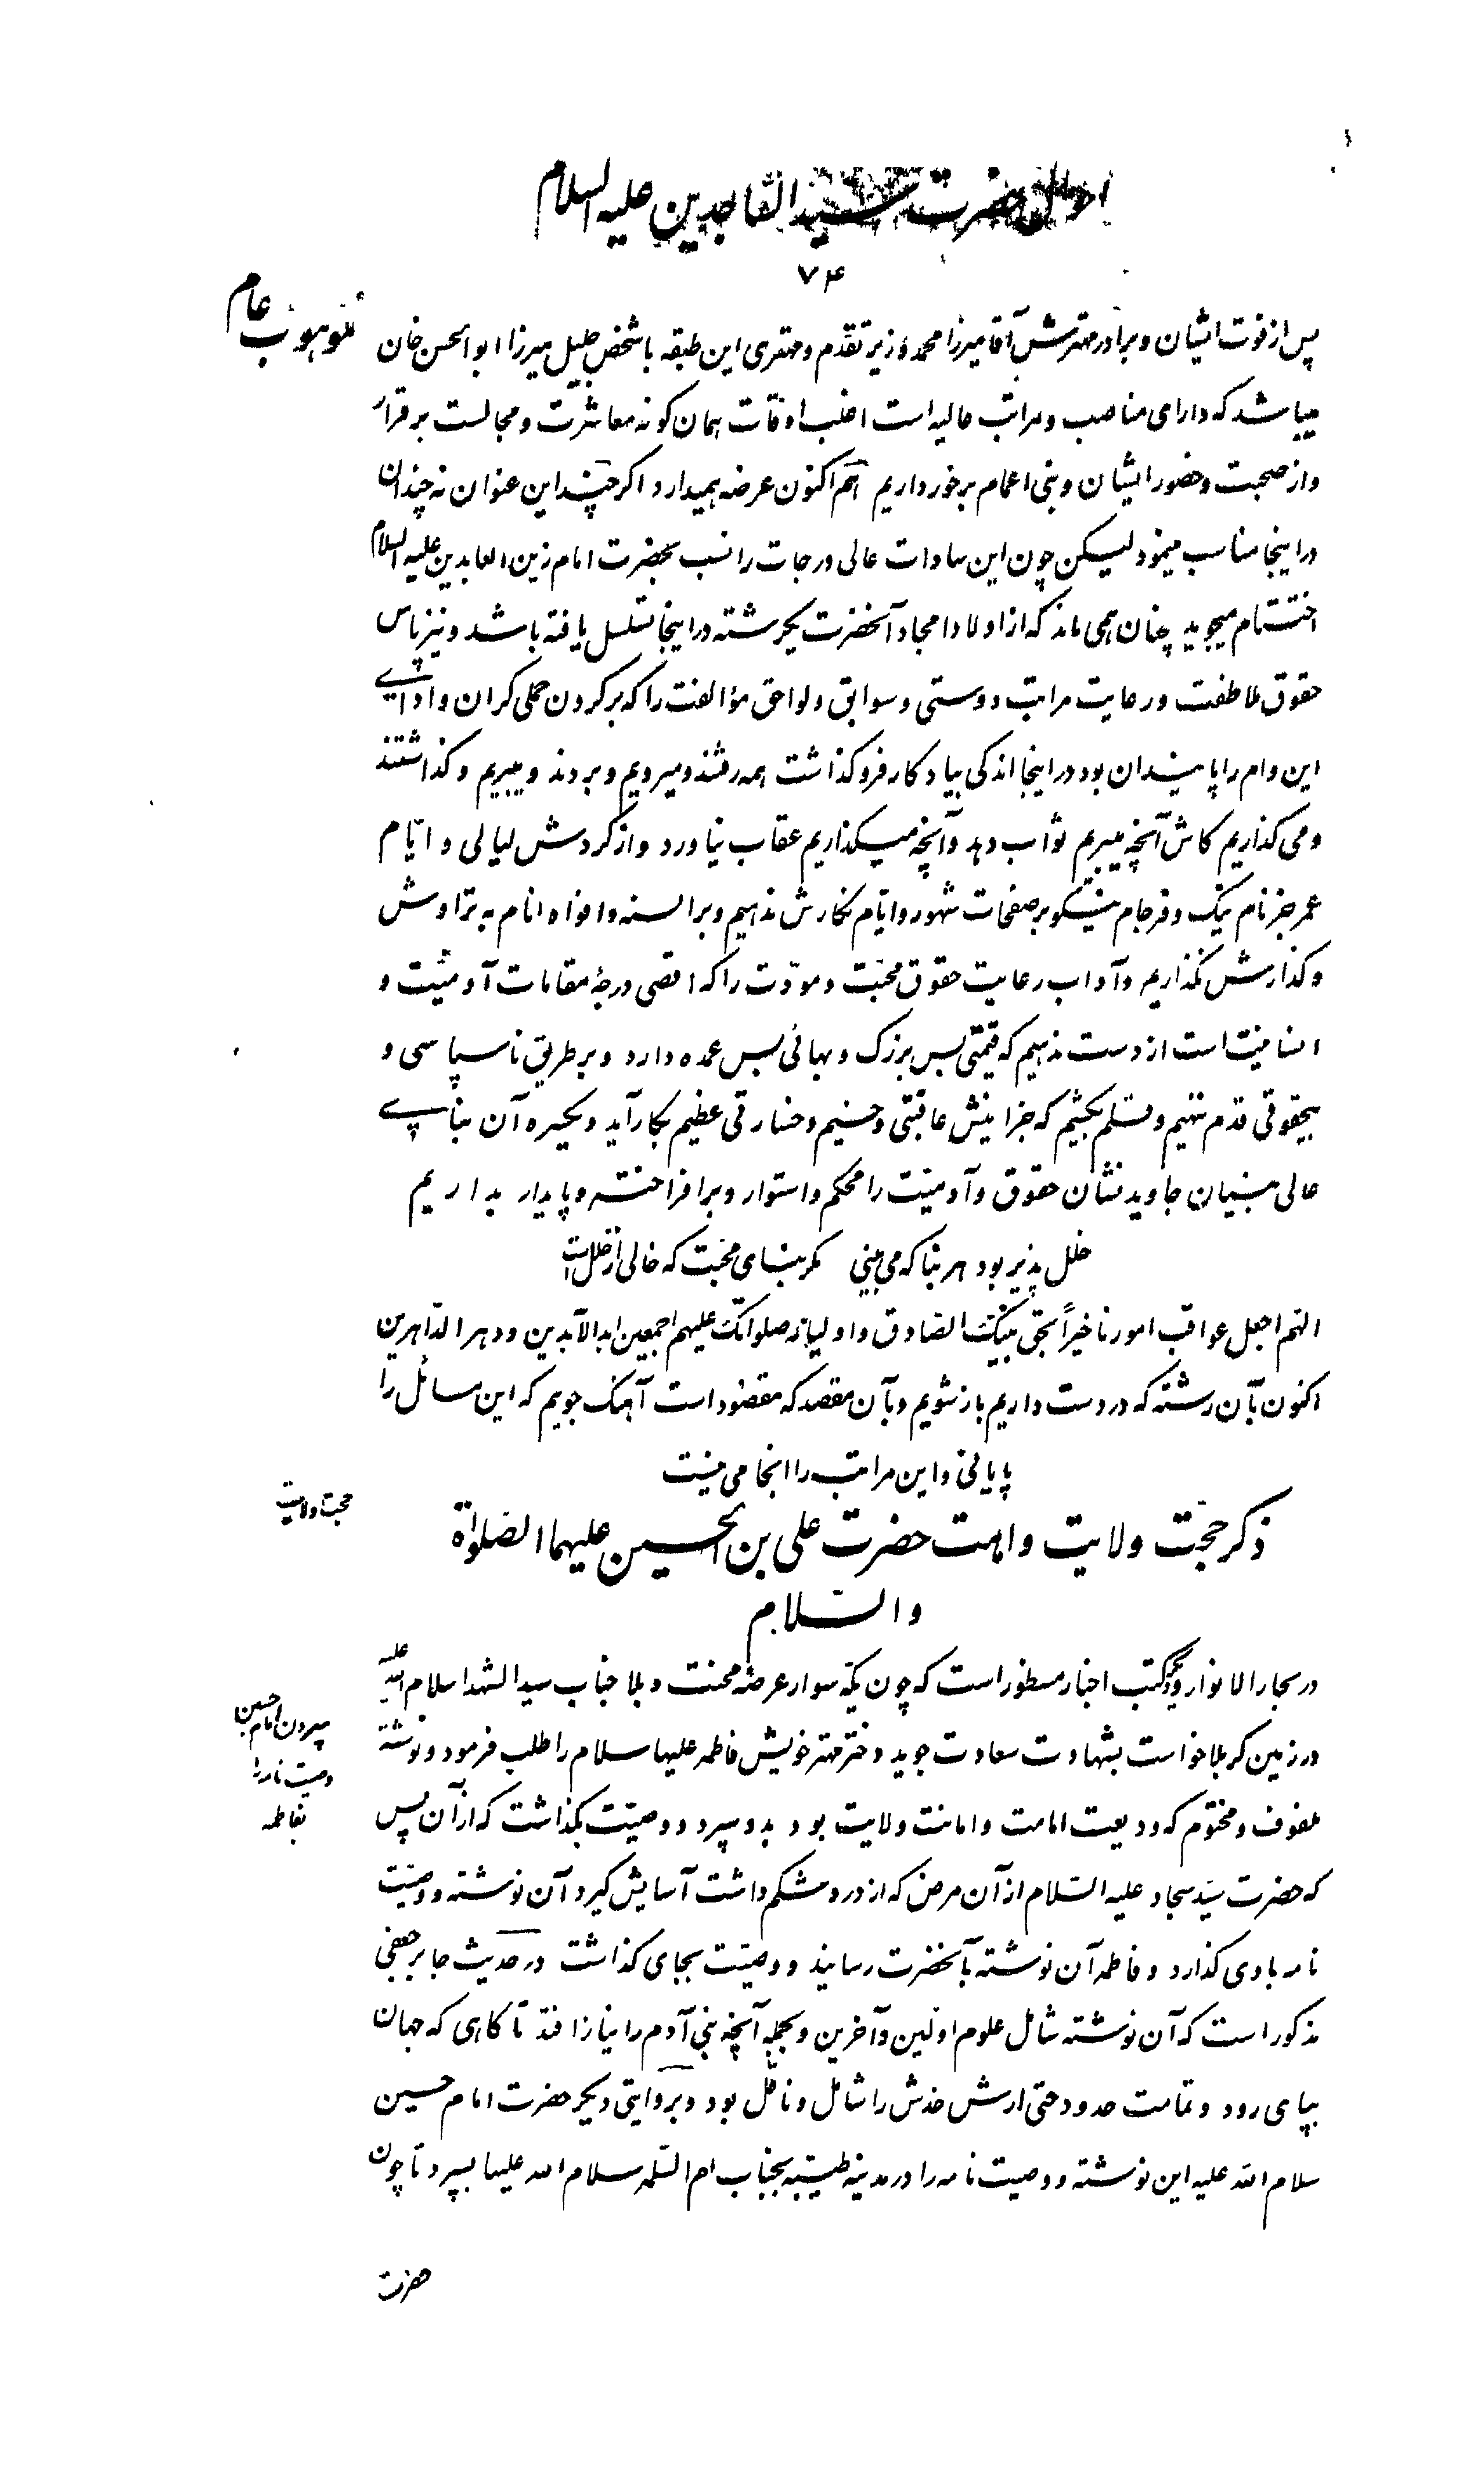 احوال حضرت سید الساجدین علیه السلام
۷۴
پس از فوت ایشان و برادر مهترش آقا میرزا محمد وزیر تقدم و مهتری این طبقه با شخص جلیل میرزا ابو الحسن خان
میباشد که دارای مناصب و مراتب عالیه است اغلب اوقات همان کونه معاشرت و مجالست برقرار
و از صحبت و حضور ایشان و بنی اعمام برخورداریم هم اکنون عرضه همیدارد اکر چند این عنوان نه چندان
در اینجا مناسب مینمود لیکن چون این سادات عالی درجات را نسب بحضرت امام زین العابدین علیه السلام
اختتام میجوید چنان همی ماند که از اولاد امجاد آنحضرت یکرشته در اینجا تسلسل یافته باشد و نیز پاس
حقوق ملاطفت و رعایت مراتب دوستی و سوابق و لواحق مؤالفت را که بر کردن حملی کران و ادای
این وام را پایندان بود در اینجا اندکی بیادکار فرو کذاشت همه رفتند و میرویم و بردند و میبریم و کذاشتند
و می کذاریم کاش آنچه میبریم ثواب دهد و آنچه میکذاریم عقاب نیاورد و از کردش لیالی و ایّام
عمر جز نام نیک و فرجام نیکو بر صفحات شهور و ایّام نکارش ندهیم و بر السنه و افواه انام به تراوش
و کذارش نکذاریم و آداب رعایت حقوق محبّت و مودّت را که اقصی درجۀ مقامات آدمیّت و
انسانیّت است از دست ندهیم که قیمتی بس بزرک و بهائی بس عمده دارد و بر طریق ناسپاسی و
بیحقوقی قدم ننهیم و تسلّم نکنیم که جز اینش عاقبتی وخیم و خسارتی عظیم بکار آید و یکسره آن بنای
عالی بنیان جاوید نشان حقوق و آدمیّت را محکم و استوار و بر افراخته و پایدار بداریم
خلل پذیر بود هر بنا که می بینی مکر بنای محبّت که خالی از خلل است
اللهم اجعل عواقب امورنا خیراً بحق نبیّک الصّادق و اولیائه صلواتک علیهم اجمعین ابد الآبدین و دهر الدّاهرین
اکنون بآن رشته که در دست داریم باز شویم و بآن مقصد که مقصود است آهنک جویم که این مسائل را
پایانی و این مراتب را انجامی نیست
محبت ولایت
ذکر حجّت ولایت و امامت حضرت علی بن الحسین علیهما الصّلوٰة
و السّلام
در بحار الانوار و دیگر کتب اخبار مسطور است که چون یکّه سوار عرصۀ محنت و بلا جناب سید الشهدا سلام الله علیه
در زمین کربلا خواست بشهادت سعادت جوید دختر مهتر خویش فاطمه علیها سلام را طلب فرمود و نوشتۀ
سپردن امام حسین
وصیت نامه را
بفاطمه
ملفوف و مختوم که ودیعت امامت و امانت ولایت بود بدو سپرد و وصیّت بکذاشت که از آن پس
که حضرت سیّد سجاد علیه السّلام از آن مرض که از درد شکم داشت آسایش کیرد آن نوشته و وصیّت
نامه باوی کذارد و فاطمه آن نوشته بآنحضرت رسانید و وصیّت بجای کذاشت در حدیث جابر جعفی
مذکور است که آن نوشته شامل علوم اولین و آخرین و بجمله آنچه بنی آدم را نیاز افتد تا کاهی که جهان
بپای رود و تمامت حدود حتی ارش خدش را شامل و ناقل بود و بروایتی دیکر حضرت امام حسین
سلام الله علیه این نوشته و وصیت نامه را در مدینه طیّبه بجناب ام السّلمه سلام الله علیها بسپرد تا چون
حضرت